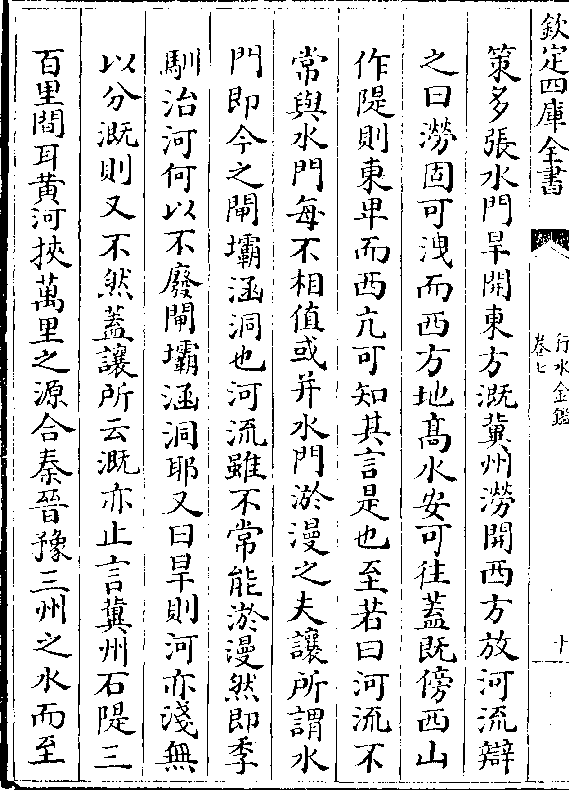 欽定四庫全書
行水金鑑
卷七
十
策多張水門旱開東方溉冀州澇開西方放河流辯
之曰澇固可洩而西方地髙水安可往蓋既傍西山
作隄則東卑而西亢可知其言是也至若曰河流不
常與水門每不相值或并水門淤漫之夫讓所謂水
門即今之閘壩涵洞也河流雖不常能淤漫然即季
馴治河何以不廢閘壩涵洞耶又曰旱則河亦淺無
以分溉則又不然蓋讓所云溉亦止言冀州石隄三
百里間耳黄河挾萬里之源合秦晉豫三州之水而至